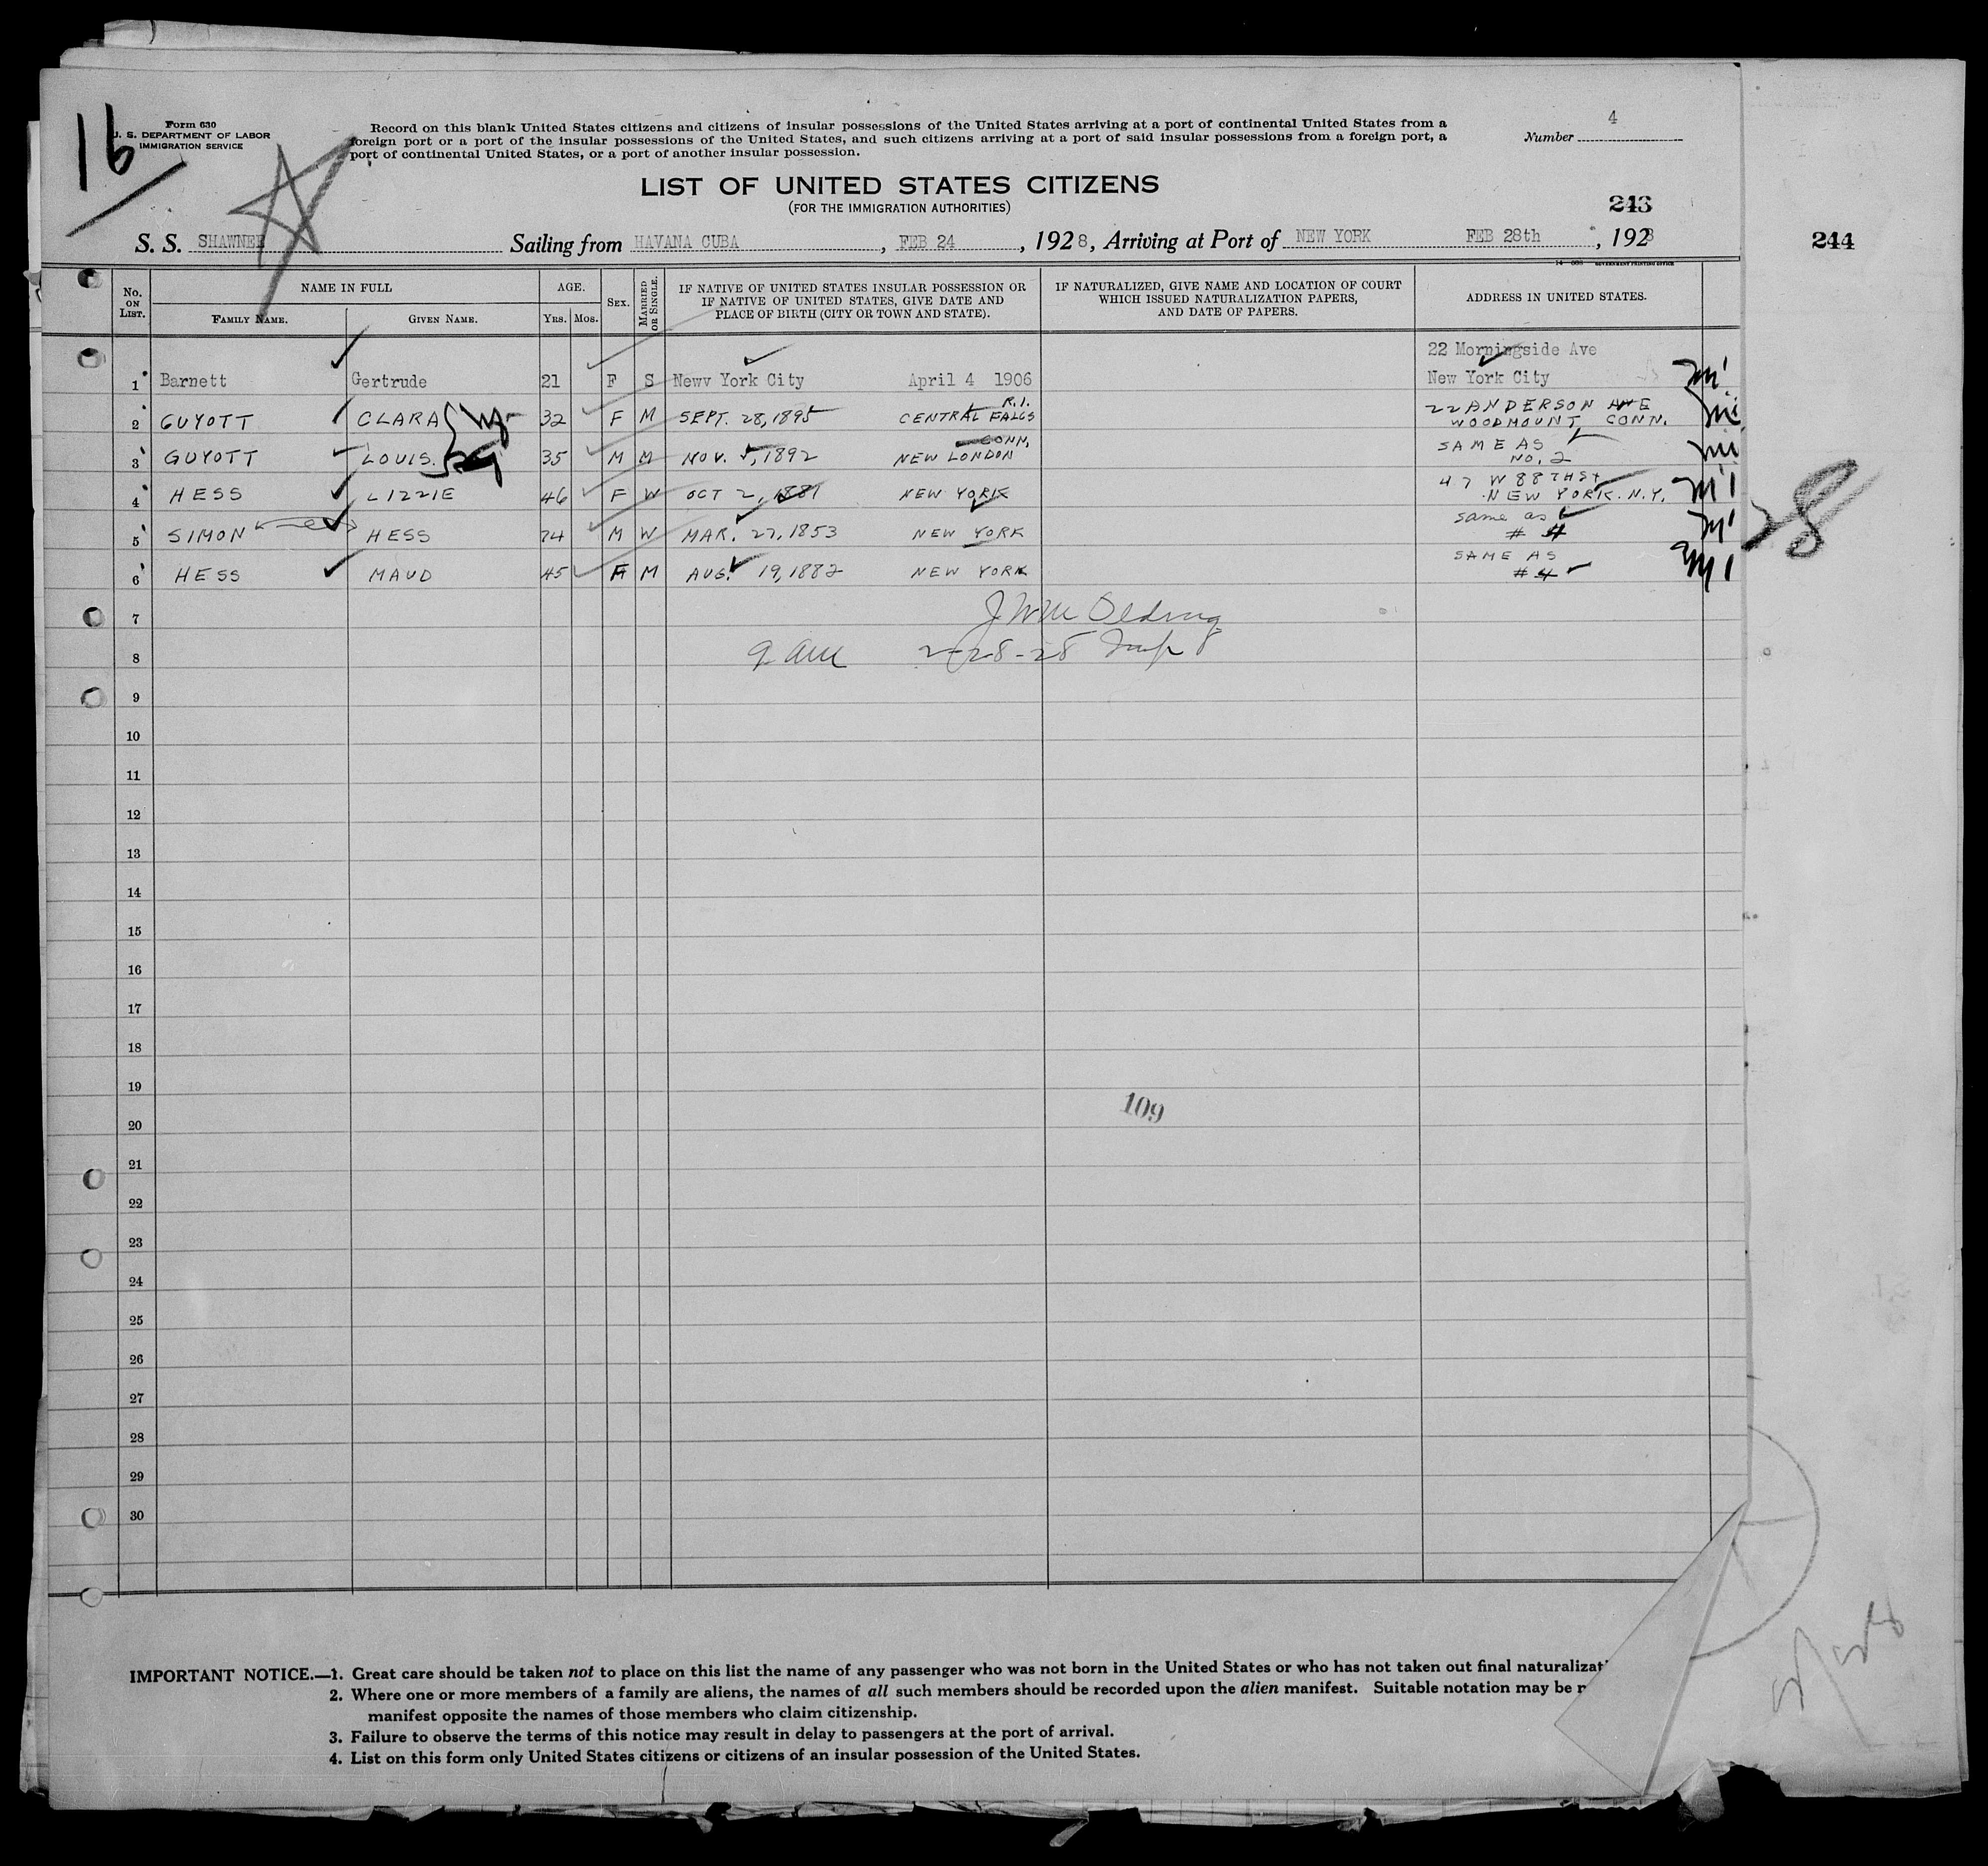 16
Form 630
U. S. DEPARTMENT OF LABOR
IMMIGRATION SERVICE
Record on this blank United States citizens and citizens of insular possessions of the United States arriving at a port of continental United States from a
foreign port or a port of the insular possessions of the United States, and such citizens arriving at a port of said insular possessions from a foreign port, a
port of continental United States, or a port of another insular possession.
Number 4
LIST OF UNITED STATES CITIZENS
(FOR THE IMMIGRATION AUTHORITIES)
243
244
S. S. SHAWNEE Sailing from HAVANA CUBA, FEB 24, 1928, Arriving at Port of NEW YORK FEB 28th, 1928
No. ON LIST. NAME IN FULL FAMILY NAME. GIVEN NAME. AGE. YRS. MOS. SEX. MARRIED OR SINGLE. IF NATIVE OF UNITED STATES INSULAR POSSESSION OR IF NATIVE OF UNITED STATES, GIVE DATE AND PLACE OF BIRTH (CITY OR TOWN AND STATE). IF NATURALIZED, GIVE NAME AND LOCATION OF COURT WHICH ISSUED NATURALIZATION PAPERS, AND DATE OF PAPERS. ADDRESS IN UNITED STATES.
22 Morningside Ave
1 Barnett Gertrude 21 F S Newv York City April 4 1906 New York City
2 GUYOTT CLARA 32 F M SEPT. 28, 1895 CENTRAL FALLS R.I. 22 ANDERSON AVE WOODMOUNT CONN.
3 GUYOTT LOUIS. 35 M M NOV. 5, 1892 NEW LONDON CONN. SAME AS NO. 2
4 HESS LIZZIE 46 F W OCT 2, 1881 NEW YORK 47 W 88TH ST NEW YORK. N.Y.
5 SIMON HESS 74 M W MAR. 27, 1853 NEW YORK same as # 4
6 HESS MAUD 45 F M AUG. 19, 1882 NEW YORK SAME AS # 4
28
7
8 9 am 2-28-28 Insp
9
10
11
12
13
14
15
16
17
18
19
109
20
21
22
23
24
25
26
27
28
29
30
IMPORTANT NOTICE.—1. Great care should be taken not to place on this list the name of any passenger who was not born in the United States or who has not taken out final
2. Where one or more members of a family are aliens, the names of all such members should be recorded upon the alien manifest. Suitable notation may be
manifest opposite the names of those members who claim citizenship.
3. Failure to observe the terms of this notice may result in delay to passengers at the port of arrival.
4. List on this form only United States citizens or citizens of an insular possession of the United States.